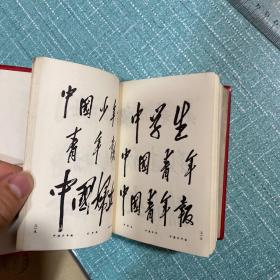 中国少年
青年报
中国妇女
中学生
中国青年
中国青年报